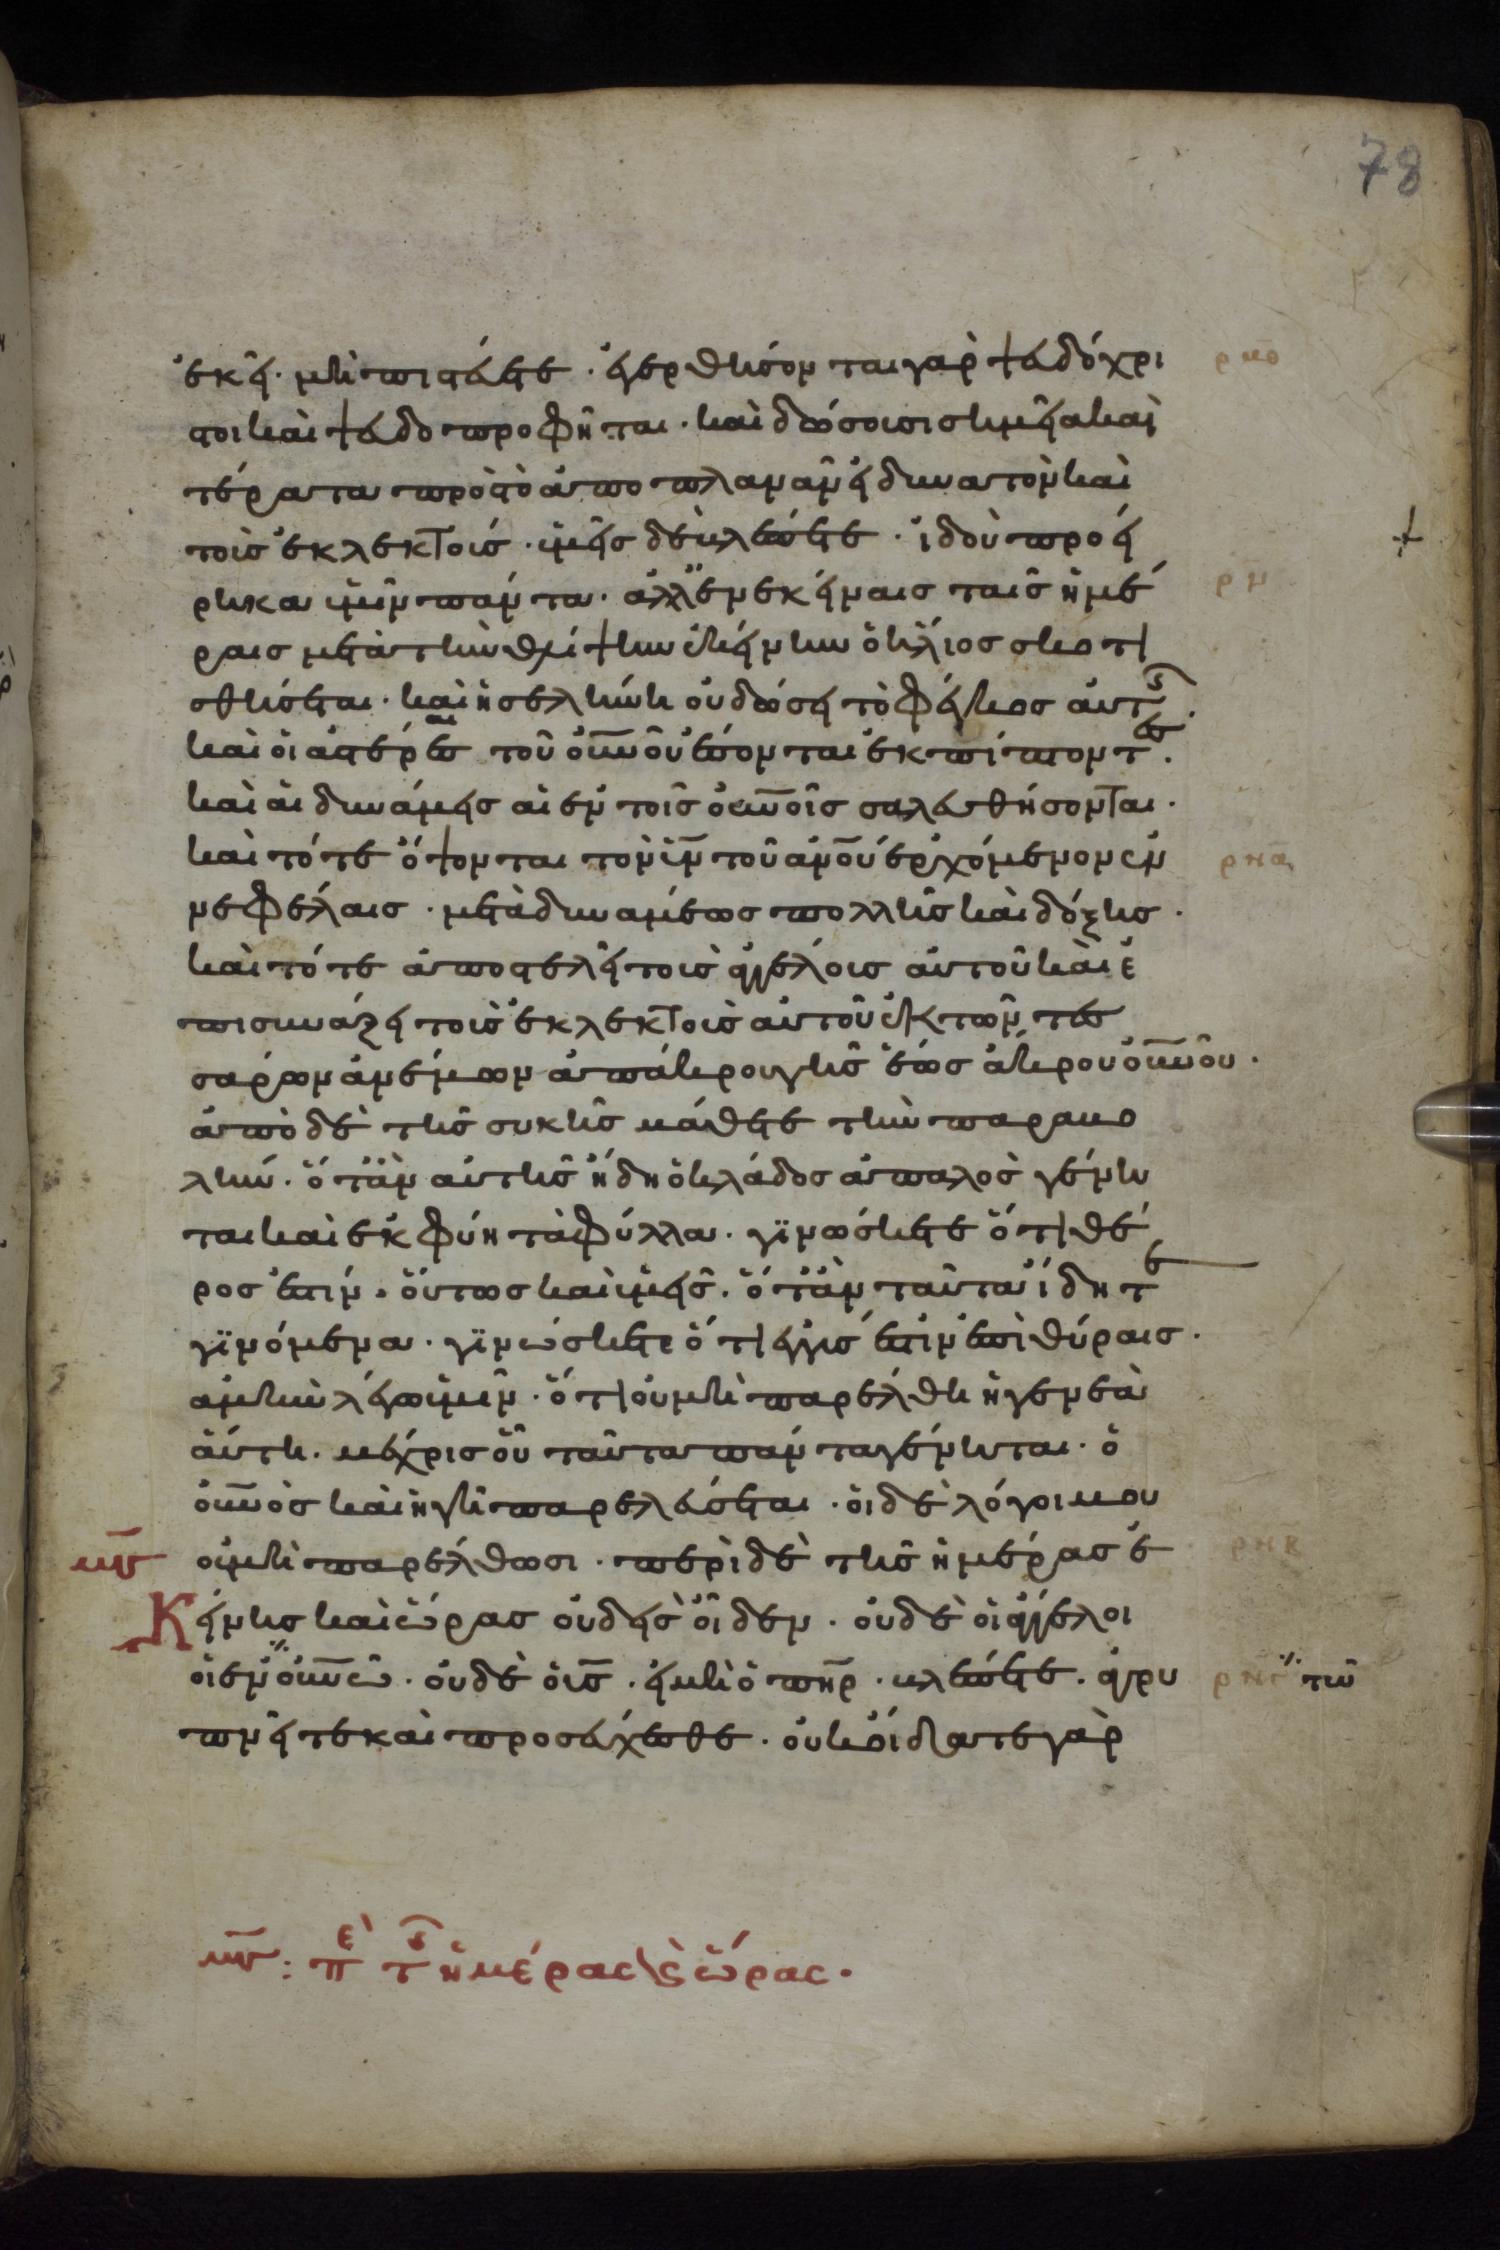 78
ἐκεῖ· μὴ πιστεύετε· ἐγερθήσονται γὰρ ψευδόχρι
στοι καὶ ψευδοπροφῆται· καὶ δώσουσι σημεῖα καὶ
τέρατα πρὸς τὸ ἀποπλανᾶν εἰ δυνατὸν καὶ
τοὺς ἐκλεκτούς· ὑμεῖς δὲ βλέπετε· ἰδοὺ προεί
ρηκα ὑμῖν πάντα· ἀλλ' ἐν ἐκείναις ταῖς ἡμέ
ραις μετὰ τὴν θλίψιν ἐκείνην ὁ ἥλιος σκοτι
σθήσεται· καὶ ἡ σελήνη οὐ δώσει τὸ φέγγος αὐτῆς·
καὶ οἱ ἀστέρες τοῦ οὐνοῦ ἔσονται ἐκπίπτοντες·
καὶ αἱ δυνάμεις αἱ ἐν τοῖς οὐνοῖς σαλευθήσονται·
καὶ τότε ὄψονται τὸν υν τοῦ ανου ἐρχόμενον ἐν
νεφέλαις· μετὰ δυνάμεως πολλῆς καὶ δόξης·
καὶ τότε ἀποστελεῖ τοὺς ἀγγέλους αὐτοῦ καὶ ἐ
πισυνάξει τοὺς ἐκλεκτοὺς αὐτοῦ ἐκ τῶν τεσ
σάρων ἀνέμων ἀπ' ἄκρου γῆς ἕως ἄκρου οὐνοῦ·
ἀπὸ δὲ τῆς συκῆς μάθετε τὴν παραβο
λήν· ὅταν αὐτῆς ἤδη ὁ κλάδος ἁπαλὸς γένη
ται καὶ ἐκφύη τὰ φύλλα· γινώσκετε ὅτι θέ
ρος ἐστίν· οὕτως καὶ ὑμεῖς· ὅταν ταῦτα ἴδητε
γινόμενα· γινώσκετε ὅτι ἐγγύς ἐστιν ἐπὶ θύραις·
ἀμὴν λέγω ὑμῖν· ὅτι οὐ μὴ παρέλθη ἡ γενεὰ
αὕτη· μέχρις οὗ ταῦτα πάντα γένηται· ὁ
οὐνὸς καὶ ἡ γῆ παρελεύσεται· οἱ δὲ λόγοι μου
οὐ μὴ παρέλθωσι· περὶ δὲ τῆς ἡμέρας ἐ
Κείνης καὶ ὥρας οὐδεὶς οἶδεν· οὐδὲ οἱ ἄγγελοι
οἱ ἐν οὐνῶ· οὐδὲ ὁ υς· εἰ μὴ ὁ πηρ· βλέπετε· ἀγρυ τῶ
πνεῖτε καὶ προσεύχεσθε· οὐκ οἴδατε γὰρ
: πε τῆς ἡμέρας καὶ ὥρας·